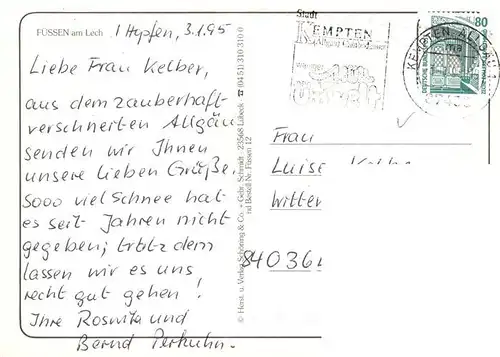 FÜSSEN am Lech
Hopfen, 3.1.95
Liebe Frau Kelber,
aus dem zauberhaft
verschneiten Allgäu
senden wir Ihnen
unsere lieben Grüße.
sooo viel Schnee hat
es seit Jahren nicht
gegeben; trotz dem
lassen wir es uns
recht gut gehen!
Ihre Roswita und
Bernd Perkuhn.
© Herst. u. Verlag Schöning & Co. + Gebr. Schmidt · 23568 Lübeck · ☎ (0451) 310 310 0
nd Bestell Nr. Füssen 12
Stadt
KEMPTEN
KEMPTEN, ALLGÄU
80
DEUTSCHE BUNDESPOST
Frau
Luise
Witten
84036